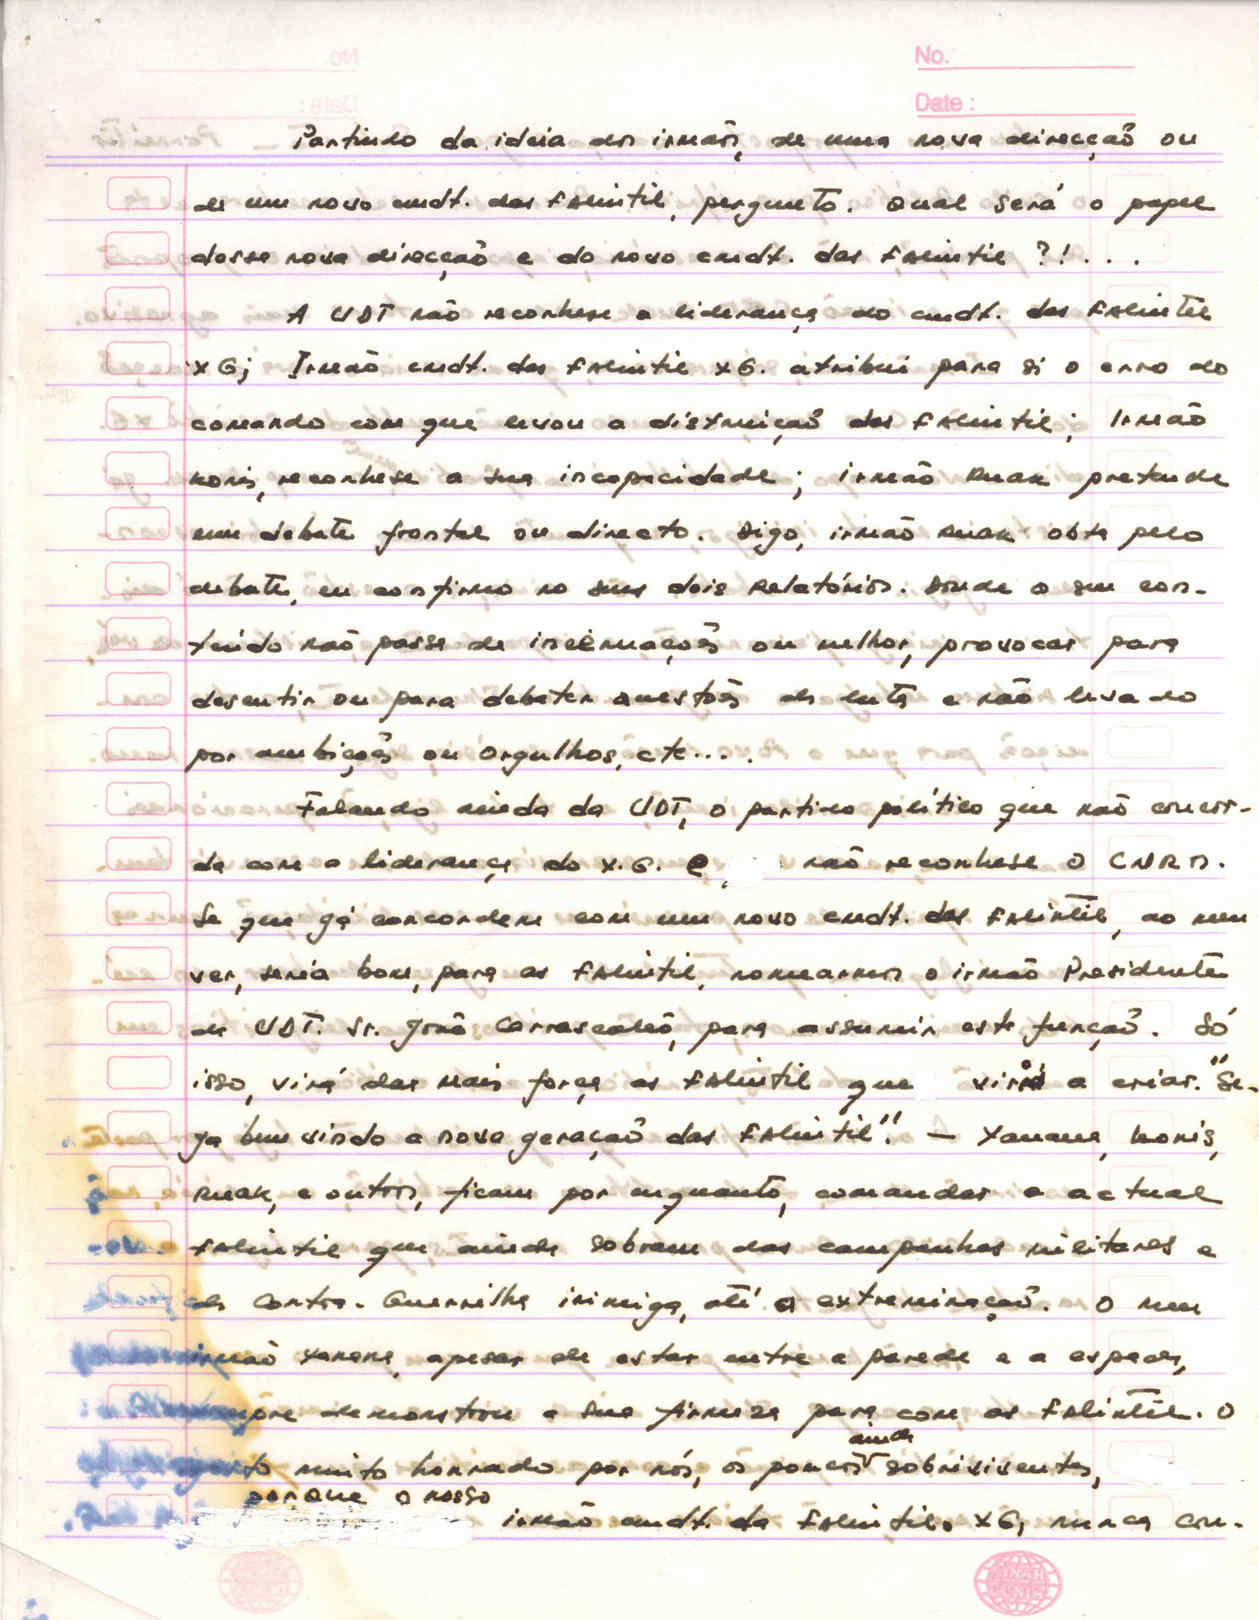 No.
Date :
Partindo da ideia dos irmãos, de uma nova direcção ou
de um novo cmdt. das FALINTIL, pergunto. Qual será o papel
dessa nova direcção e do novo cmdt. das FALINTIL ?!...
A UDT não reconhese a liderança do cmdt. das FALINTIL
XG; Irmão cmdt. das FALINTIL XG. atribui para si o erro do
comando com que levou a distruição das FALINTIL; Irmão
Konis, reconhese a sua incapacidade; irmão Ruak pretende
um debate frontal ou directo. Digo, irmão Ruak obta pelo
debate, eu confirmo no seus dois Relatórios. Donde o seu con-
teúdo não passa de ou melhor, provocar para
descutir ou para debater questões da luta e não levado
por ambições ou orgulhos, etc....
Falando ainda da UDT, o partido político que não concor-
da com a liderança do X.G. e, não reconhese o CNRM.
Se que já concordem com um novo cmdt. das FALINTIL, ao meu
ver, seria bom, para as FALINTIL, nomearmos o irmão Presidente
da UDT. Sr. João Carrascalão, para assumir esta função. Só
isso, virá dar mais força as FALINTIL que virá a criar. "Se-
ja bem vindo a nova geração das FALINTIL". — Xanana, Konis,
Ruak, e outros, ficam por enquanto, comandar a actual
FALINTIL que ainda sobram das campanhas militares e
da Contra-Guerrilha inimiga, até a extreminação. O meu
irmão Xanana, apesar de estar entre a parede e a espada,
sempre demonstrou a sua firmeza para com as FALINTIL. O
muito honrado por nós, os poucos ainda sobriviventes,
porque o nosso
irmão cmdt. da FALINTIL. XG, nunca con-